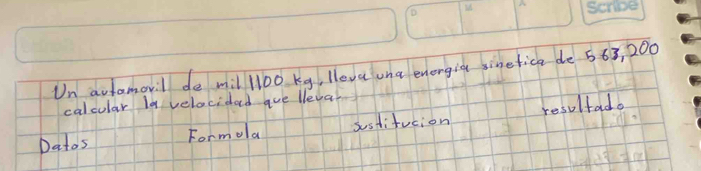 D M A Scribe
Un automovil de mil 1100 kg, lleva una energia sinetica de 563,200
calcular la velocidad que lleva.
Datos Formola sustitucion resultado